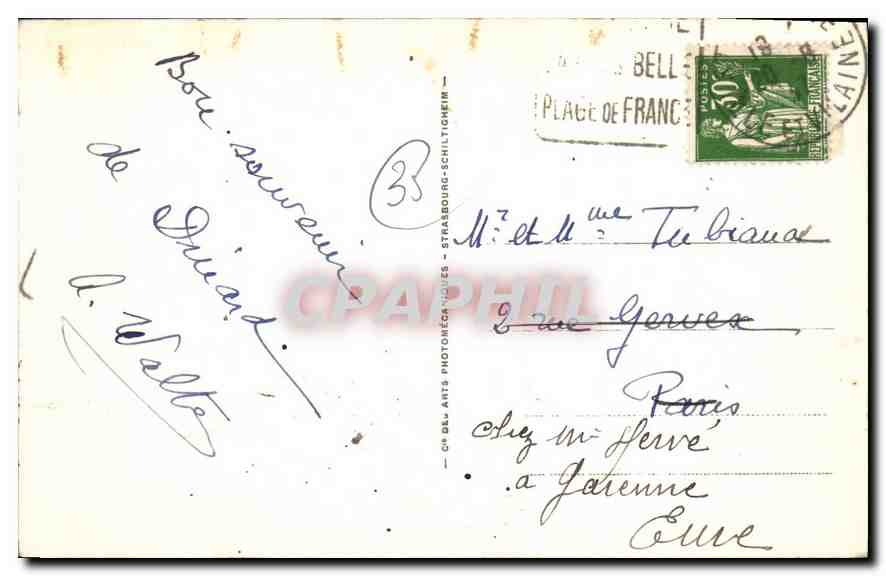 Bon souvenir
de Dinard.
A. Walter
35
Cie DES ARTS PHOTOMÉCANIQUES - STRASBOURG-SCHILTIGHEIM
BELLE
PLAGE DE FRANCE
POSTES
30c
REPUBLIQUE FRANÇAISE
LAINE
CPAPHIL
Mr et Mme Tubiana
2 rue Gervex
Paris
chez Mr Hervé
à Garenne
Eure